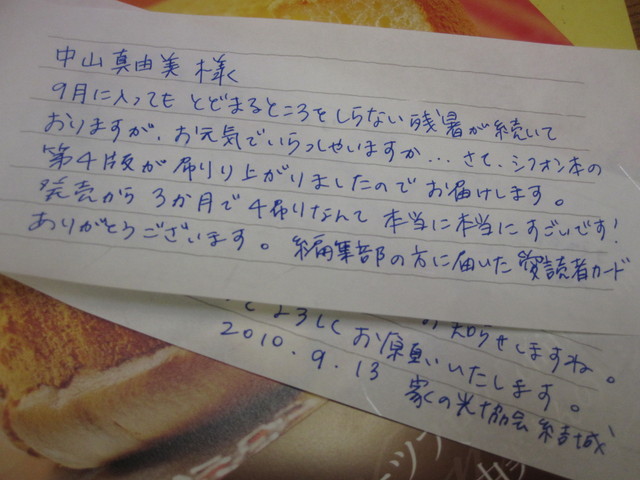 中山真由美 様
9月に入っても とどまるところをしらない残暑が続いて
おりますが、お元気でいらっしゃいますか… さて、シフォン本の
第4版が刷り上がりましたのでお届けします。
発売から 3か月で4刷りなんて 本当に本当にすごいです!
ありがとうございます。 編集部の方に届いた愛読者カード
お知らせしますね。
よろしくお願いいたします。
2010.9.13 家の光協会 結城